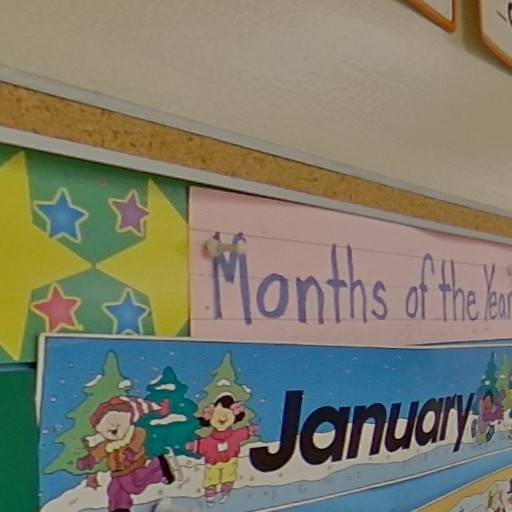 Months of the Year
January